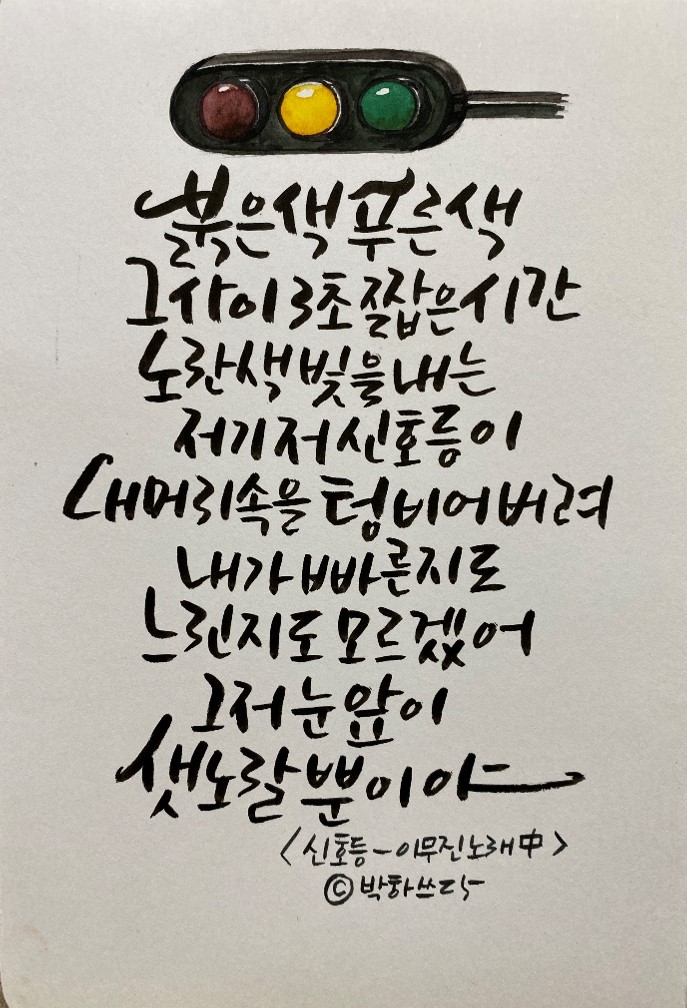 붉은색 푸른색
그 사이 3초 짧은 시간
노란색 빛을 내는
저기 저 신호등이
내 머리속을 텅 비어버려
내가 빠른지도
느린지도 모르겠어
그저 눈앞이
샛노랄 뿐이야
<신호등-이무진 노래 中>
©박화쓰다